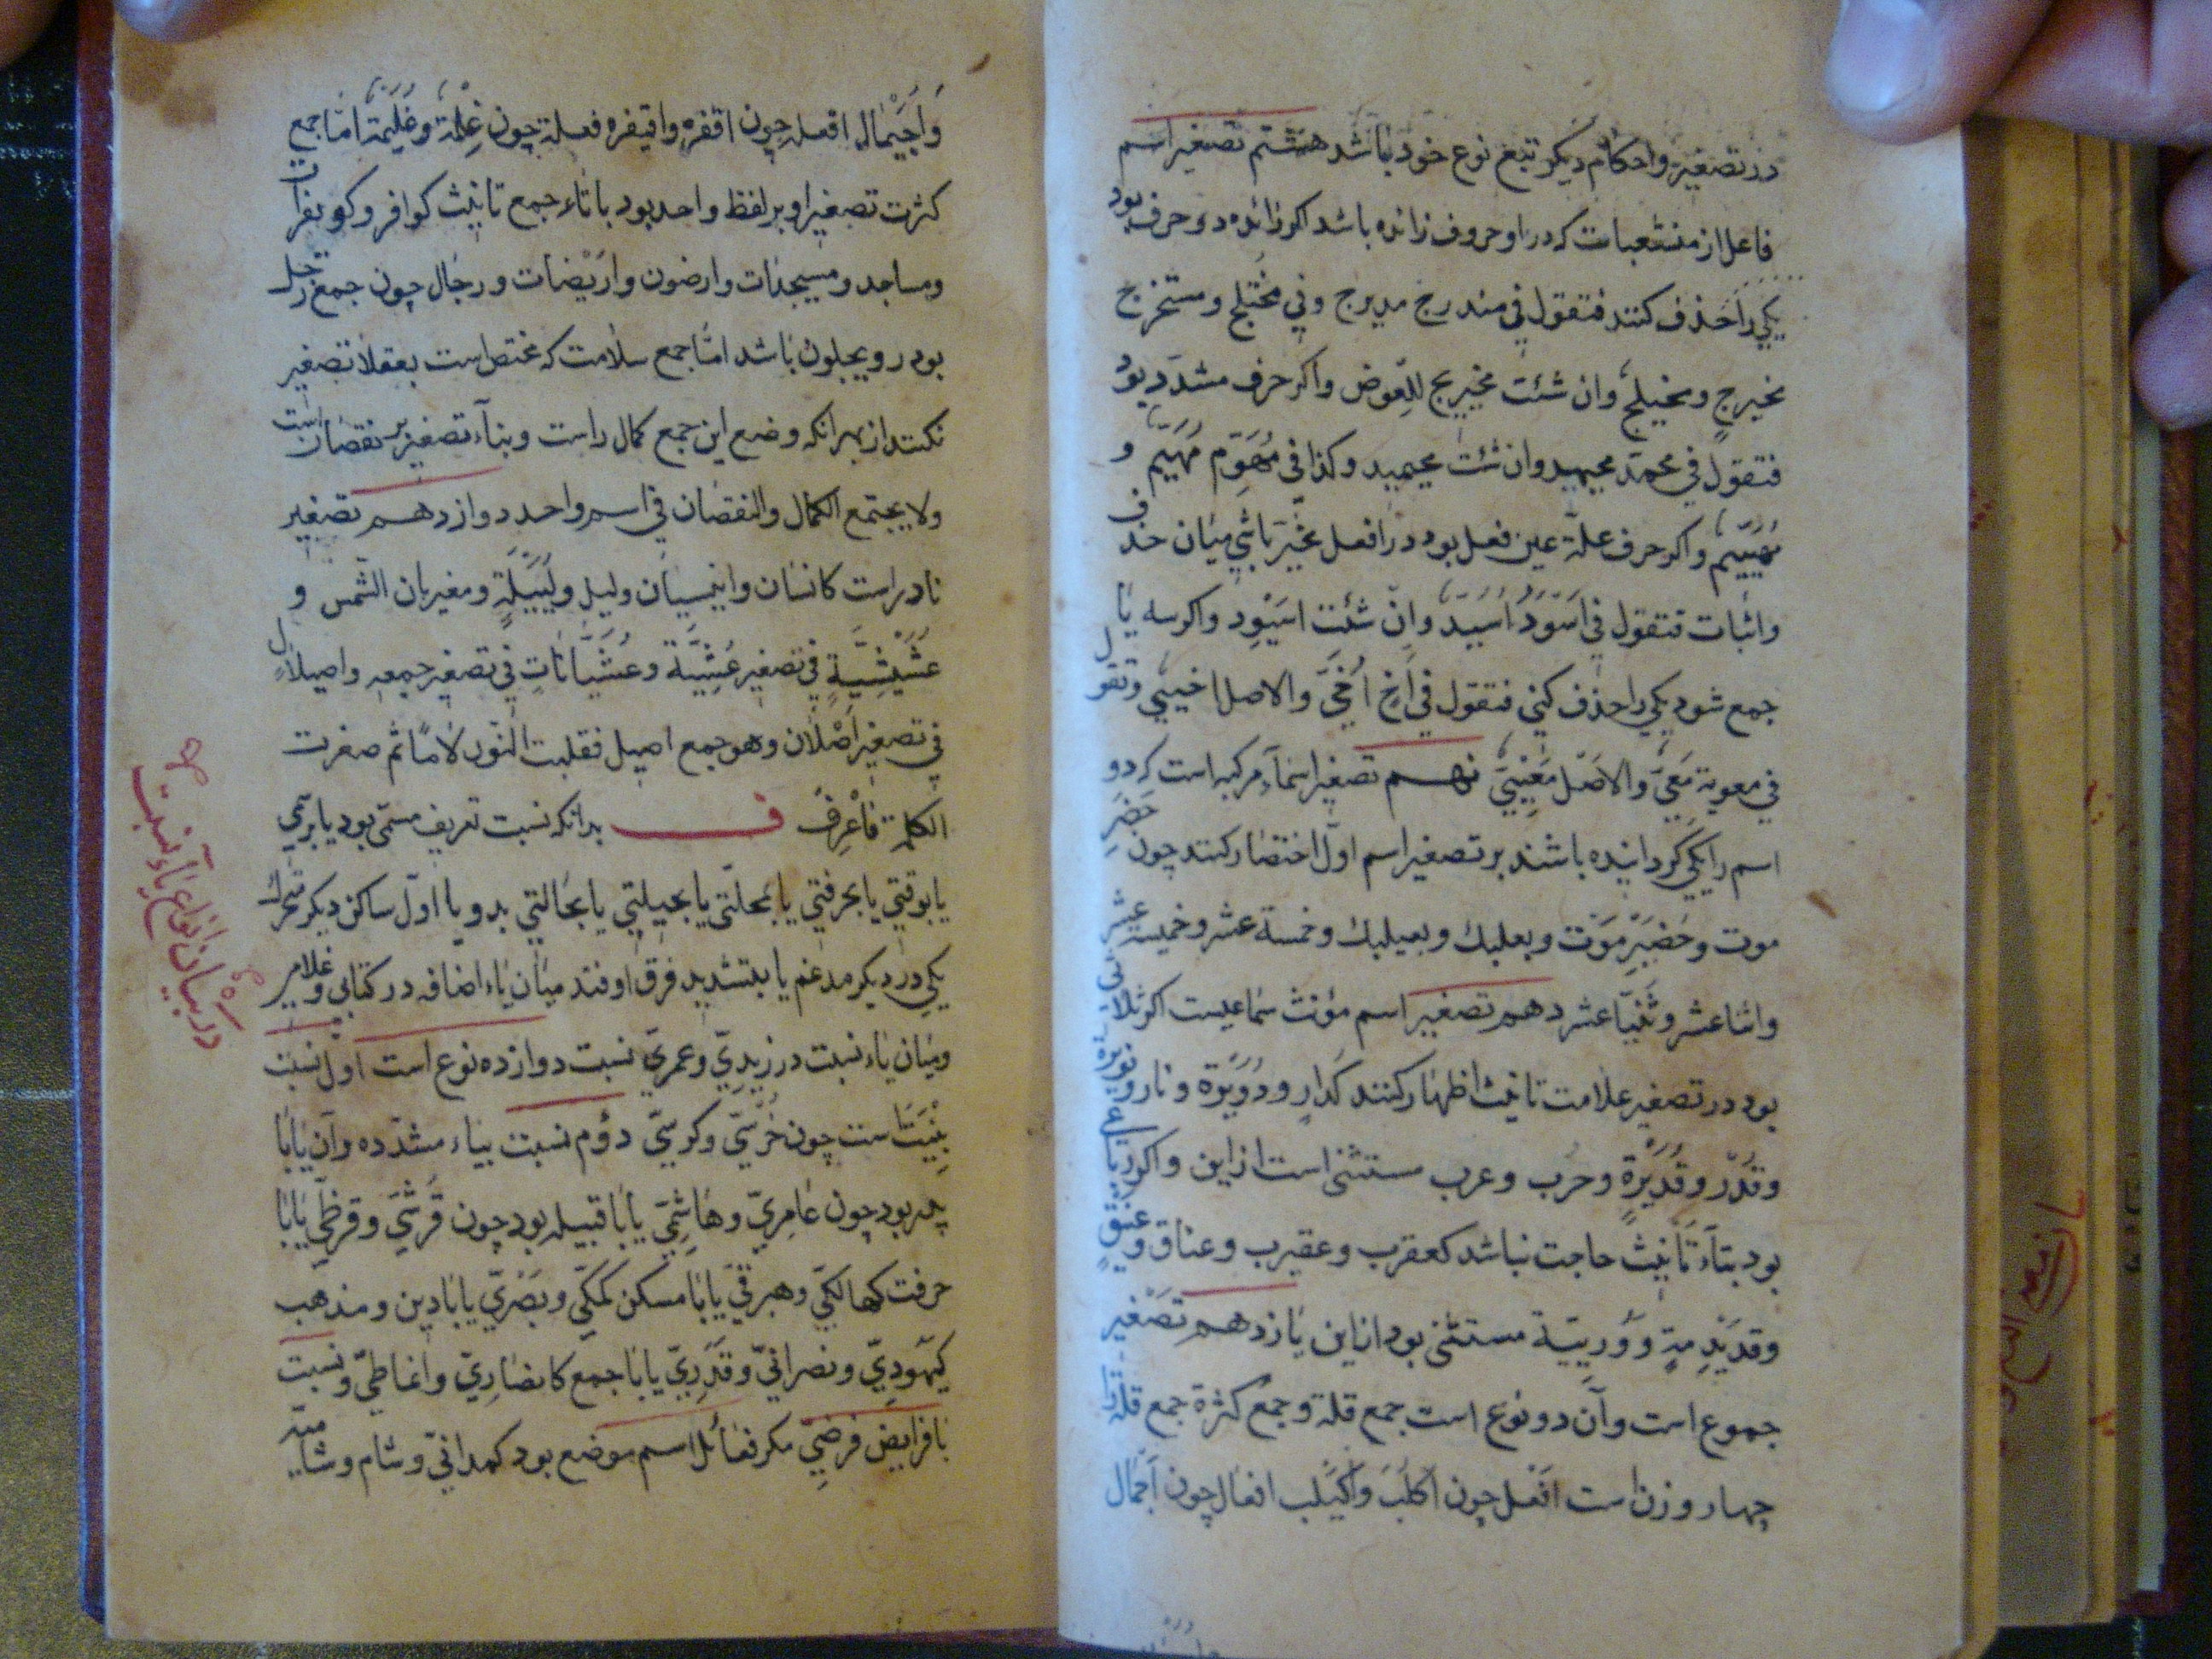 در تصغیر واحکام دیکر تبع نوع خود باشد هشتم تصغیر اسم
فاعل از منشعبات که در او حروف زائده باشد اکر زائده دو حرف بود
یکی را حذف کنند فتقول فی مندرج مدیرج وفی مختلج ومستخرج
مخیرج ومخیلج وان شئت مخیریج للعوض واکر حرف مشدد بود
فتقول فی محمد محیمد وان شئت محیمید وکذا فی مُهَوِّم مُهَیِّم و
مُهَیِّیم واکر حرف علة عین فعل بود در افعل مخیر باشی میان حذف
واثبات فتقول فی اَسْوَدُ اُسَیِّد وان شئت اسَیْوِد واکر سه یا
جمع شود یکی را حذف کنی فتقول فی اَخٍ اُخَیَّ والاصل اخییی وتقول
فی معویة مُعَیَّ والاصل مُعَیِیَّ نهم تصغیر اسمآء مرکبه است که دو
اسم را یکی کردانیده باشند بر تصغیر اسم اول اختصار کنند چون حَضْرَ
موت وحُضَیْرِمَوْت وبعلبك وبعیلبك وخمسة عشر وخمیسة عشر
واثنا عشر وثُنَیّا عشر دهم تصغیر اسم مؤنث سماعیست اکر ثلاثی
بود در تصغیر علامت تانیث اظهار کنند کَدارٍ ودُوَیْرَة ونار ونویرة
وقدْر وقُدَیْرَة وحرب وعرب مستثنی است از این واکر رباعی
بود بتآء تأنیث حاجت نباشد کعقرب وعقیرب وعناق وعنیق
وقدَیْدِیمةٍ ووُرِیّیَة مستثنی بود از این یازدهم تَصْغیر
جموع است وآن دو نوع است جمع قلة وجمع کثرة جمع قلة را
چهار وزن است اَفْعُل چون اَکْلُبَ واُکَیْلب افعال چون اَجْمال
وَاُجَیْمال افعلة چون اقفزه واقیفزه فعلة چون غِلْمَة وغُلَیْمَة امّا جمع
کثرت تصغیر او بر لفظ واحد بود با تاء جمع تانیث کوافر وکویفرات
ومساجد ومسیجدات وارضون واُرَیْضات ورجال چون جمع رَجل
بود رویجلون باشد امّا جمع سلامت که مختص است بعقلا تصغیر
نکنند از بهر انکه وضع این جمع کمال راست وبنآء تصغیر بر نقصان است
ولا یجتمع الکمال والنقصان فی اسم واحد دوازدهم تصغیر
نادر است کانسان وانیسیان ولیل ولُیَیْلَةٍ ومغیربان الشّمس و
عُشَیْشِیَّةٍ فی تصغیر عَشِیَّة وعُشَیَّانَاتٍ فی تصغیر جمعه واصیلالٍ
فی تصغیر اُصْلان وهو جمع اصیل فقلبت النّون لامًا ثم صغرت
الکلمة فَاعْرِفْ ف بدانکه نسبت تعریف مسمّی بود یا برّی
یا بوقتی یا بحرفتی یا بمحلّتی یا بحیلتی یا بحالتی بدو یا اوّل ساکن دیکر متحرك
یکی در دیکر مدغم یا بتشدید فرق اوفتد میان یاء اضافه در کتابی وغلامی
ومیان یاء نسبت در زیدیّ وعمریّ نسبت دوازده نوع است اول نسبت
بِنْیَتَاست چون خُرْسِیّ وکرسیّ دوُم نسبت بیاء مشدّده وآن یا با
پدر بود چون عامِریّ وهَاشِمِیّ یا با قبیله بود چون قُرَشِیّ وقرظیّ یا با
حرفت کهالکیّ وهبرقیّ یا با مسکن کمکّی وبَصْریّ یا با دین ومذهب
کیَهُودِیّ ونصرانیّ وقَدَرِیّ یا با جمع کانصَارِیّ وانماطیّ ونسبت
با فرایض فرضِیّ مکر فعائل اسم موضع بود کمدائنیّ وشام وشا
در بیان انواع یاء نسبت